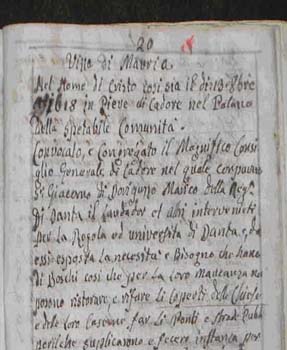 20
Vizo di Mauria
Nel Nome di Cristo così sia il dì 13 8bre
1618 in Pieve di Cadore nel Palazzo
della Spetabile Comunità
Convocato, e Congregato il Magnifico Consi
glio Generale di Cadore nel quale comparve
Giacomo Marco della Regola
di Danta il Laudador et altri intervenienti
per la Regola ed università di Danta, ed
essi esposta la necessita e Bisogno che hanno
di Boschi così che per la loro mancanza no
posono ristorare, e rifare li coperti delle Chiese
e delle loro Casere, far li Ponti e strade Pub
periche suplicarono e fecero instanza per